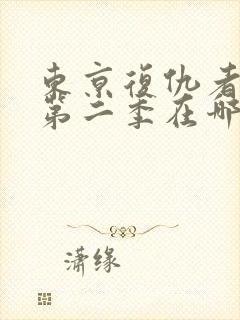 東京復仇者
第二季在哪
潇缘